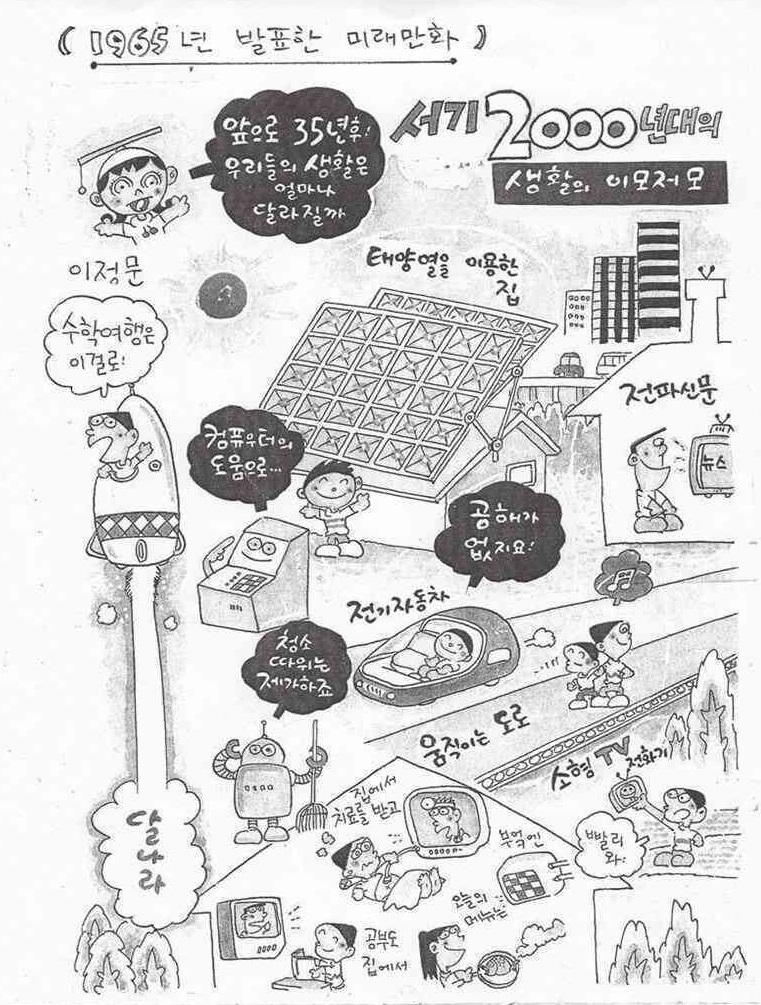 ( 1965년 발표한 미래만화 )
앞으로 35년후!
우리들의 생활은
얼마나
달라질까
서기 2000년대의
생활의 이모저모
이정문
수학여행은
이걸로!
태양열을 이용한
집
전파신문
뉴스
컴퓨우터의
도움으로...
공해가
없지요!
전기자동차
청소
따위는
제가하죠
움직이는 도로
소형 TV
전화기
빨리
와!
집에서
치료를 받고
부엌엔
오늘의
메뉴는
공부도
집에서
달나라